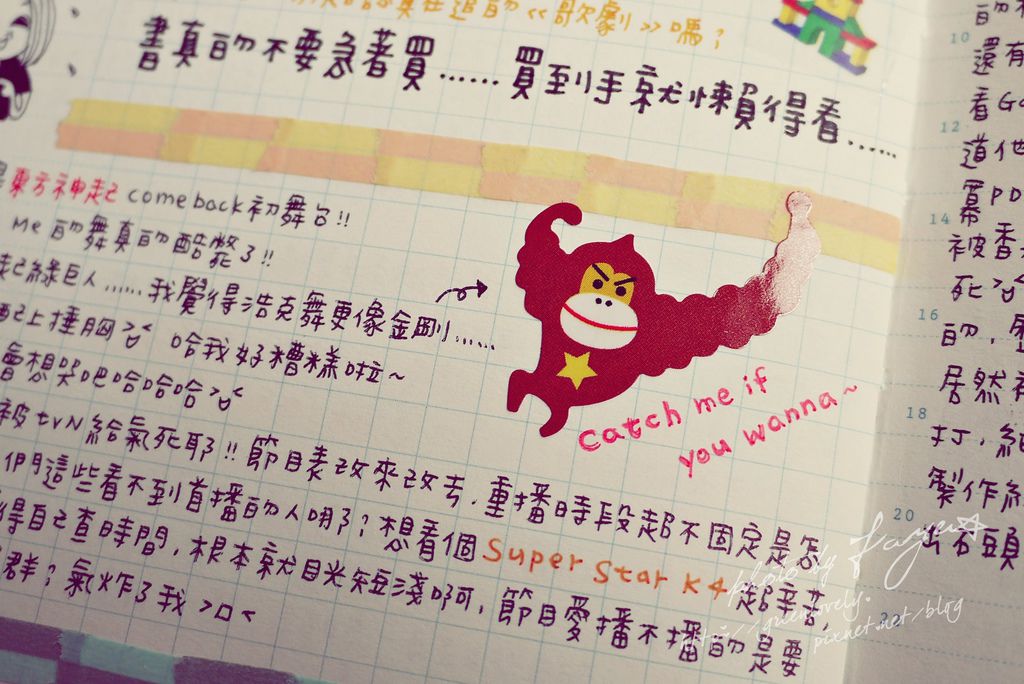 在追的《歌劇》嗎?
書真的不要急著買……買到手就懶得看……
東方神起 comeback初舞台!!
Me的舞真的酷斃了!!
綠巨人……我覺得浩克舞更像金剛……
上捶胸>< 哈我好糟糕啦~
會想哭吧哈哈哈><
Catch me if
you wanna~
被tvN給氣死耶!!節目表改來改去,重播時段超不固定是怎
們這些看不到首播的人嗎?想看個Super Star K4超辛苦,
得自己查時間,根本就目光短淺啊,節目愛播不播的是要
群?氣炸了我>口<
10
還有
看G
12
道他
幕PD
14
被香
死>
16
的,
居然
18
打,
製作
20
出石頭
photo by Fayeu
pixnet.net/blog